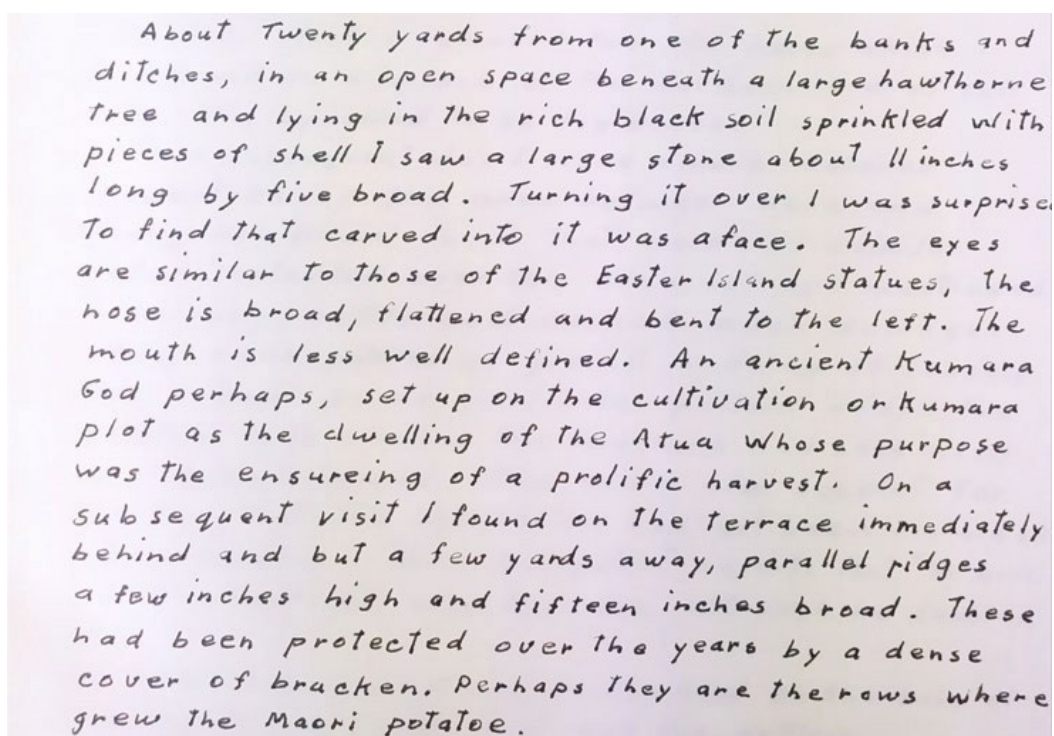 About Twenty yards from one of the banks and
ditches, in an open space beneath a large hawthorne
tree and lying in the rich black soil sprinkled with
pieces of shell I saw a large stone about 11 inches
long by five broad. Turning it over I was surprise
To find that carved into it was a face. The eyes
are similar to those of the Easter Island statues, the
nose is broad, flattened and bent to the left. The
mouth is less well defined. An ancient Kumara
God perhaps, set up on the cultivation or Kumara
plot as the dwelling of the Atua whose purpose
was the ensureing of a prolific harvest. On a
subsequent visit I found on the terrace immediately
behind and but a few yards away, parallel ridges
a few inches high and fifteen inches broad. These
had been protected over the years by a dense
cover of bracken. Perhaps they are the rows where
grew the Maori potatoe.